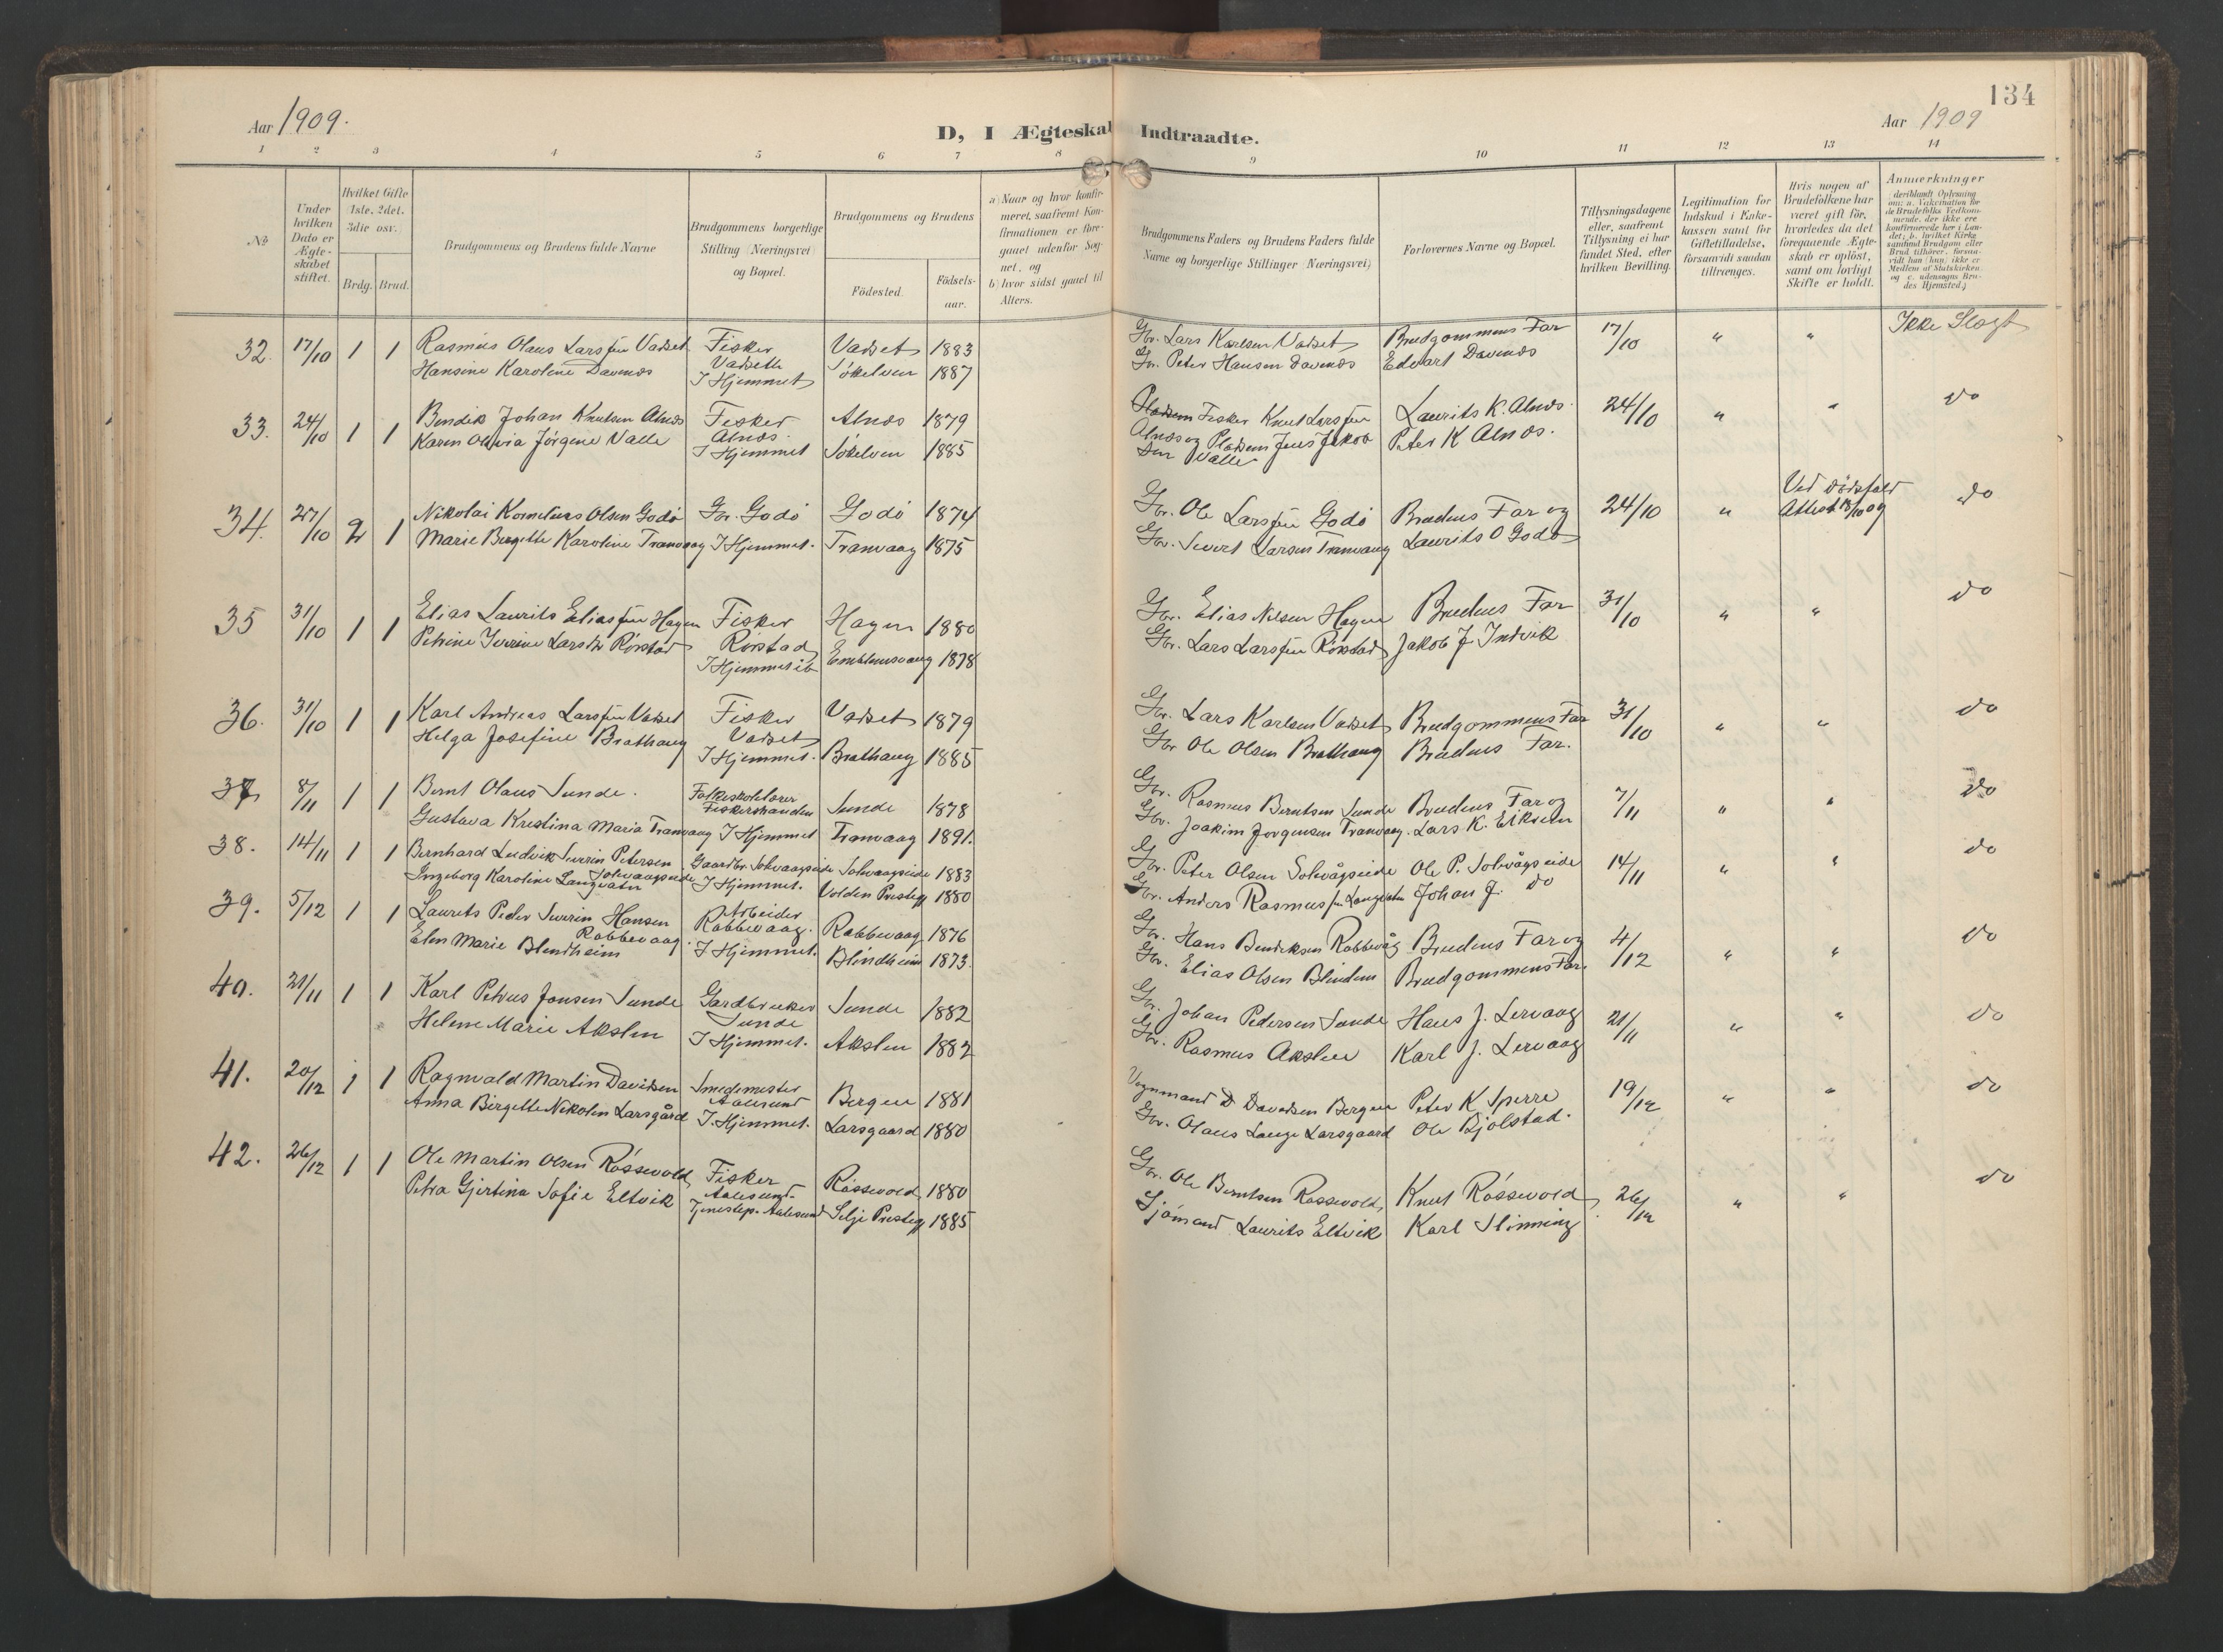 134
Aar 1909.
Aar 1909
D, I Ægteskab Indtraadte.
1 2 3 4 5 6 7 8 9 10 11 12 13 14
No
Under hvilken Dato er Ægteskabet stiftet.
Hvilket Gifte 1ste, 2det, 3die osv.
Brdg. Brud.
Brudgommens og Brudens fulde Navne
Brudgommens borgerlige Stilling (Næringsvei) og Bopæl.
Brudgommens og Brudens
Födested.
Födselsaar.
a) Naar og hvor konfirmeret, saafremt Konfirmationen er foregaaet udenfor Sognet, og
b) hvor sidst gaaet til Alters.
Brudgommens Faders og Brudens Faders fulde Navne og borgerlige Stillinger (Næringsvei)
Forlovernes Navne og Bopæl.
Tillysningsdagene eller, saafremt Tillysning ei har fundet Sted, efter hvilken Bevilling.
Legitimation for Indskud i Enkekassen samt for Giftetilladelse, forsaavidt saadan tiltrænges.
Hvis nogen af Brudefolkene har været gift för, hvorledes da det foregaaende Ægteskab er oplöst, samt om lovligt Skifte er holdt.
Anmerkninger
32. 17/10 1 1 Rasmus Olaus Larssen Vadset Fisker Vadset 1883 Gbr. Lars Karlsen Vadset Brudgommens Far 17/10 " " Ikke Slægt
Hansine Karoline Davenæs Vadseth
I Hjemmet Sökelven 1887 Gbr. Peter Hansen Davenæs Edvart Davenæs
33. 24/10 1 1 Bendik Johan Knutsen Alnæs Fisker Alnæs 1879 Fisker Knut Larssen Laurits K. Alnæs. 24/10 " " do
Karen Oliva Jörgine Valle Alnæs.
I Hjemmet Sökelven 1885 Alnæs og Pladsm Jens Jakob Peter K Alnæs.
sen Valle
34. 27/10 2 1 Nikolai Kornelius Olsen Godö Gbr. Godö Godö 1874 Gbr. Ole Larssen Godö Brudens Far og 24/10 " Ved Dödsfald
Attest 13/10 09 do
Marie Bergitte Karoline Tranvaag I Hjemmet. Tranvaag 1875 Gbr. Sivert Larsen Tranvaag Laurits O Godö
35 31/10 1 1 Elias Laurits Eliassen Hagen Fisker Hagen 1880 Gbr. Elias Nilsen Hagen Brudens Far 31/10 " " do
Petrine Iverine Larsdr Rörstad Rörstad
I Hjemmet ib Emblemsvaag 1878 Gbr. Lars Larssen Rörstad Jakob J Indvik
36. 31/10 1 1 Karl Andreas Larssen Vadset Fisker Vadset 1879 Gbr. Lars Karlsen Vadset Brudgommens Far 31/10 " " do
Helga Josefine Brathaug Vadset
I Hjemmet. Brathaug 1885 Gbr Ole Olsen Brathaug Brudens Far.
37 8/11 1 1 Bernt Olaus Sunde. Folkeskolelærer
Fiskershanden Sunde 1878 Gbr. Rasmus Berntsen Sunde Brudens Far og 7/11 " " do
Gustava Kristina Maria Tranvaag I Hjemmet Tranvaag 1891. Gbr. Joakim Jorgensen Tranvaag. Lars K. Eiksem
38. 14/11 1 1 Bernhard Ludvik Severin Petersen
Solevaagseide Gaardbr. Solevaagseide Solevaagseide 1883 Gbr. Peter Olsen Solevågseide Ole P. Solevågseide 14/11 " " do
Ingeborg Karoline Langvatn I Hjemmet. Volden Prestegj 1880 Gbr. Anders Rasmussen Langvatn Johan J. do
39. 5/12 1 1 Laurits Peder Severin Hansen
Robbevaag. Arbeider
Robbevaag. Robbevaag 1876 Gbr. Hans Bendiksen Robbevåg Brudens Far og 4/12 " " do
Elen Marie Blindheim I Hjemmet. Blindheim 1873. Gbr. Elias Olsen Blindem Brudgommens Far.
40. 21/11 1 1 Karl Petrus Jonsen Sunde Gardbruker
Sunde Sunde 1882 Gbr. Johan Pedersen Sunde Hans J. Lervaag 21/11 " " do
Helene Marie Akslen I Hjemmet. Akslen 1882 Gbr. Rasmus Akslen Karl J. Lervaag
41. 20/12 1 1 Ragnvald Martin Davidsen Smedemester
Aalesund Bergen 1881 Vognmand D Davidsen Bergen Peter K Sperre 19/12 " " do
Anna Birgitte Nikolin Larsgård I Hjemmet. Larsgaard 1880 Gbr. Olaus Lange Larsgaard Ole Bjölstad.
42. 26/12 1 1 Ole Martin Olsen Rössevold Fisker
Aalesund Rössevold 1880 Gbr. Ole Berntsen Rossevold, Knut Rössevold 26/12 " " do
Petra Gjertina Sofie Eltvik Tjenestep. Aalesund Selje Prestegj 1885 Sjömand Laurits Eltvik Karl Slinning